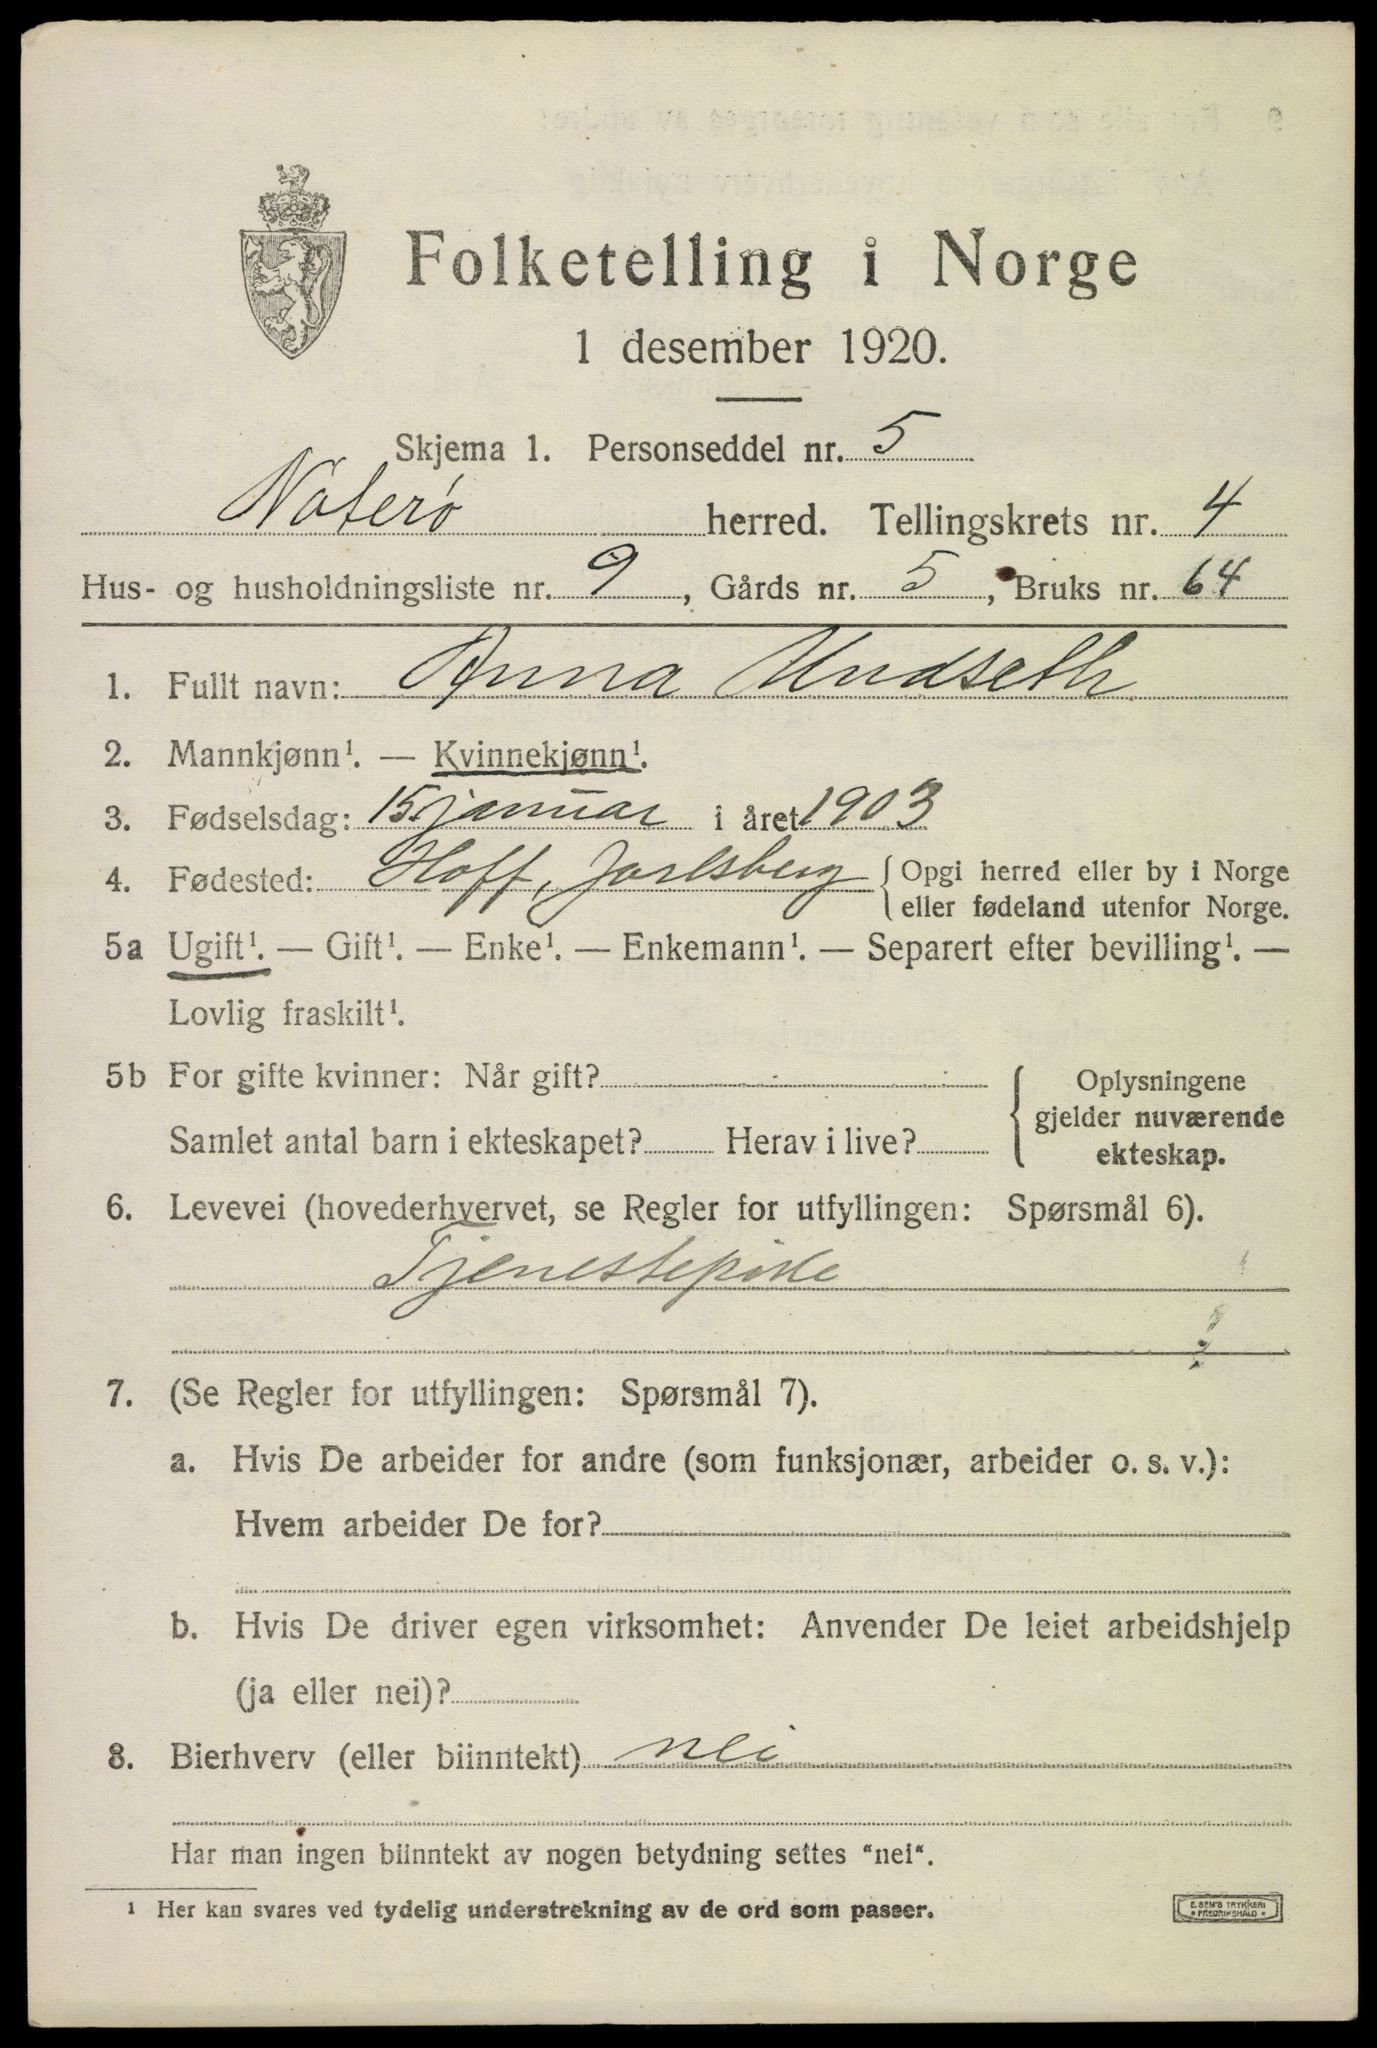 Folketelling i Norge
1 desember 1920.
Skjema 1. Personseddel nr. 5
Nøterø herred. Tellingskrets nr. 4
Hus- og husholdningsliste nr. 9, Gårds nr. 5, Bruks nr. 64
1. Fullt navn: Anna Undseth
2. Mannkjønn¹. — Kvinnekjønn¹.
3. Fødselsdag: 15 januar i året 1903
4. Fødested: Hoff, Jarlsberg { Opgi herred eller by i Norge
eller fødeland utenfor Norge.
5a Ugift¹. — Gift¹. — Enke¹. — Enkemann¹. — Separert efter bevilling¹. —
Lovlig fraskilt¹.
5b For gifte kvinner: Når gift?
Samlet antal barn i ekteskapet? Herav i live?
{ Oplysningene
gjelder nuværende
ekteskap.
6. Levevei (hovederhvervet, se Regler for utfyllingen: Spørsmål 6).
Tjenestepike
7. (Se Regler for utfyllingen: Spørsmål 7).
a. Hvis De arbeider for andre (som funksjonær, arbeider o. s. v.):
Hvem arbeider De for?
b. Hvis De driver egen virksomhet: Anvender De leiet arbeidshjelp
(ja eller nei)?
8. Bierhverv (eller biinntekt) nei
Har man ingen biinntekt av nogen betydning settes "nei".
¹ Her kan svares ved tydelig understrekning av de ord som passer.
E. SEM'S TRYKKERI
• FREDRIKSHALD •